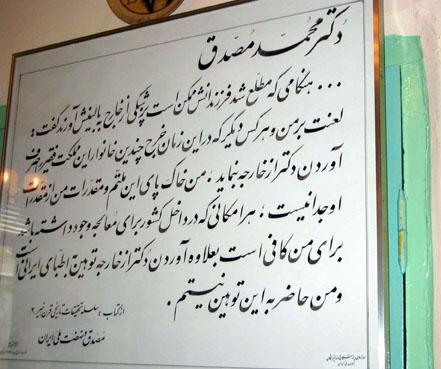 دکتر محمد مصدق
... هنگامی که مطلع شد فرزندانش ممکن است پزشکی از خارج ببالینش آورند گفت :
لعنت بر من و هر کس دیگر که در این زمان خرج چندین خانوار این مملکت فقیر صرف
آوردن دکتر از خارجه نماید ، من خاک پای این ملتم و مقدرات من از مقدرات
او جدا نیست ، هر امکانی که در داخل کشور برای معالجه وجود داشته باشد
برای من کافی است بعلاوه آوردن دکتر از خارجه توهین به اطبای ایرانی است
و من حاضر به این توهین نیستم .
از کتاب : سلسله تحقیقات تاریخی قرن اخیر
مصدق و نهضت ملی ایران